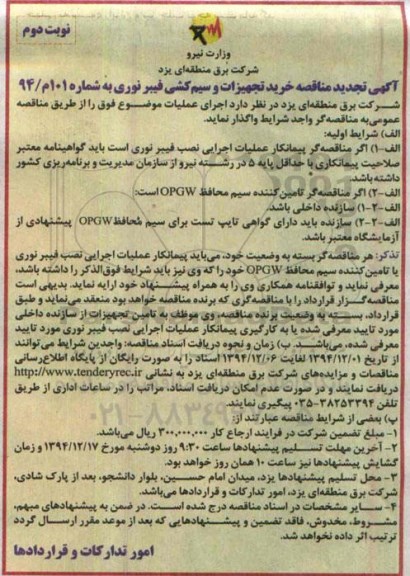 نوبت دوم
وزارت نیرو
شرکت برق منطقه‌ای یزد
آگهی تجدید مناقصه خرید تجهیزات و سیم‌کشی فیبر نوری به شماره ۱۰۱م/۹۴
شــرکت برق منطقه‌ای یزد در نظر دارد اجرای عملیات موضــوع فوق را از طریق مناقصه
عمومی‌به مناقصه‌گر واجد شرایط واگذار نماید.
الف) شرایط اولیه:
الف-۱) اگر مناقصه‌گر پیمانکار عملیات اجرایی نصب فیبر نوری است باید گواهینامه معتبر
صلاحیت پیمانکاری با حداقل پایه ۵ در رشــته نیرو از سازمان مدیریت و برنامه‌ریزی کشور
داشته باشد.
الف-۲) اگر مناقصه‌گر تامین‌کننده سیم محافظ OPGW است:
الف-۲-۱) سازنده داخلی باشد.
الف-۲-۲) سازنده باید دارای گواهی تایپ تست برای سیم مُحافظ OPGW پیشنهادی از
آزمایشگاه معتبر باشد.
تذکر: هر مناقصه‌گر بسته به وضعیت خود، می‌باید پیمانکار عملیات اجرایی نصب فیبر نوری
یا تامین‌کننده سیم محافظ OPGW خود را که وی نیز باید شرایط فوق‌الذکر را داشته باشد،
معرفی نماید و توافقنامه همکاری وی را به همراه پیشــنهاد خود ارایه نماید. بدیهی است
مناقصه‌گــزار قرارداد را با مناقصه‌گری که برنده مناقصه خواهد بود منعقد می‌نماید و طبق
قرارداد، بســته به وضعیت برنده مناقصه وی موظف به تامین تجهیزات از سازنده داخلی
مورد تایید معرفی شده یا به کارگیری پیمانکار عملیات اجرایی نصب فیبر نوری مورد تایید
معرفی شده، می‌باشــد. ب) زمان و نحوه دریافت اسناد مناقصه: واجدین شرایط می‌توانند
از تاریخ ۱۳۹۴/۱۲/۰۱ لغایت ۱۳۹۴/۱۲/۰۶ اسناد را به صورت رایگان از پایگاه اطلاع‌رسانی
مناقصات و مزایده‌های شرکت برق منطقه‌ای یزد به نشانی http://www.tenderyrec.ir
دریافت نمایند و در صورت عدم امکان دریافت اسناد، مراتب را در ساعات اداری از طریق
تلفن ۳۸۲۵۳۳۹۴-۰۳۵ پیگیری نمایند.
پ) بعضی از شرایط مناقصه عبارتند از:
۱- مبلغ تضمین شرکت در فرایند ارجاع کار ۳۰۰٫۰۰۰٫۰۰۰ ریال می‌باشد.
۲- آخرین مهلت تســلیم پیشنهادها ساعت ۹:۳۰ روز دوشنبه مورخ ۱۳۹۴/۱۲/۱۷ و زمان
گشایش پیشنهادها نیز ساعت ۱۰ همان روز خواهد بود.
۳- محل تسلیم پیشنهادها یزد، میدان امام حســین، بلوار دانشجو، بعد از پارک شادی،
شرکت برق منطقه‌ای یزد، امور تدارکات و قراردادها می‌باشد.
۴- ســایر مشخصات در اسناد مناقصه درج شده است. در ضمن به پیشنهادهای مبهم،
مشــروط، مخدوش، فاقد تضمین و پیشــنهادهایی که بعد از موعد مقرر ارســال گردد
ترتیب اثر داده نخواهد شد.
امور تدارکات و قراردادها